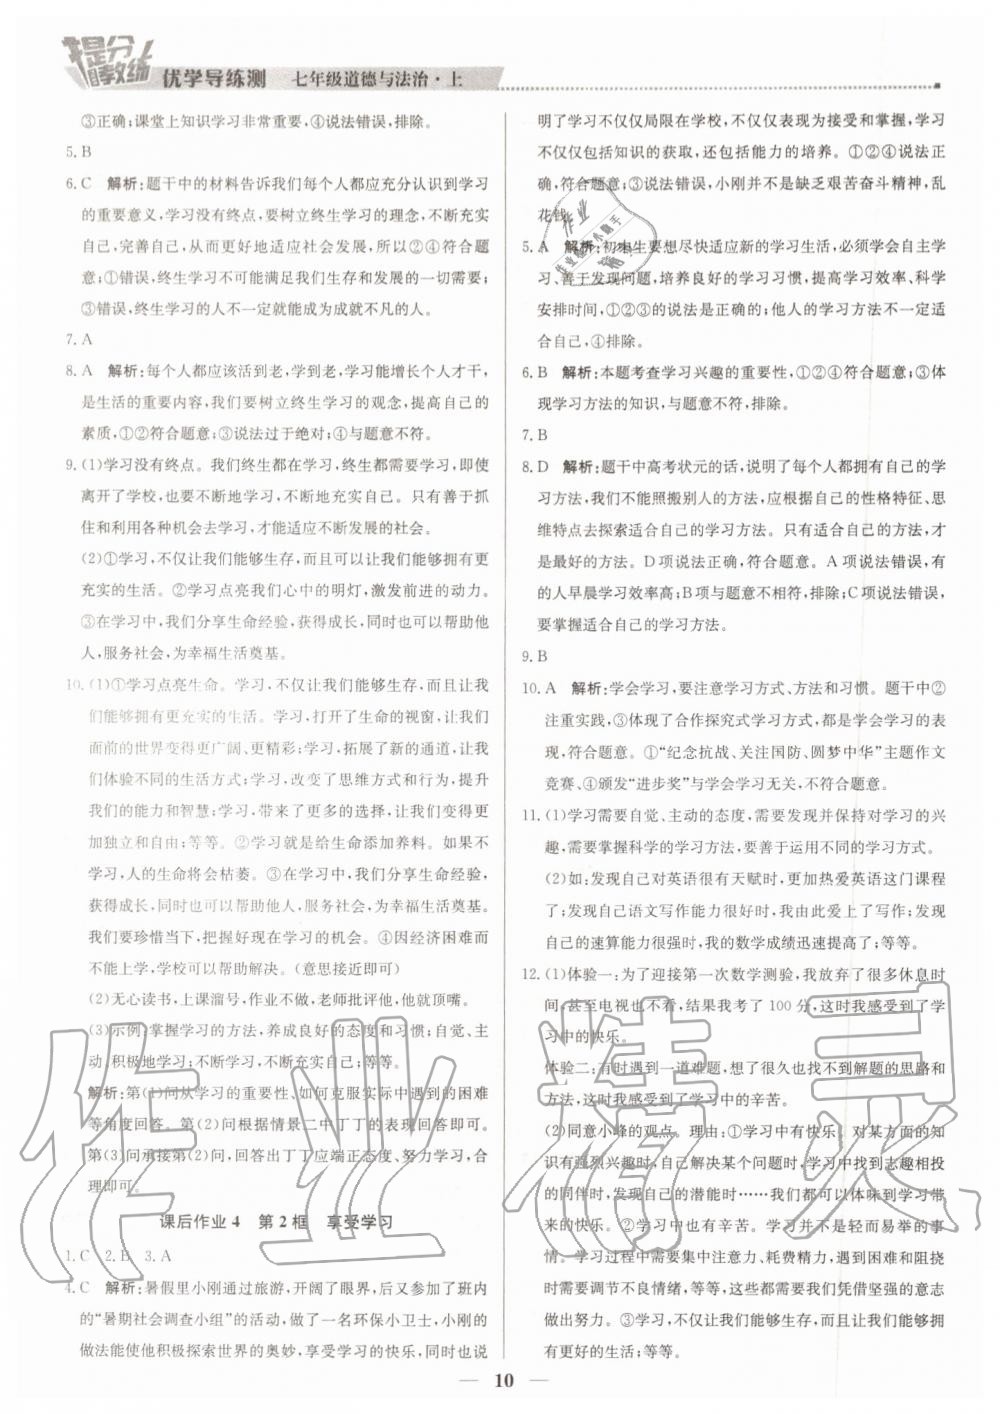 提分教练
优学导练测 七年级道德与法治·上
③正确;课堂上知识学习非常重要,④说法错误,排除。
5. B
6. C 解析:题干中的材料告诉我们每个人都应充分认识到学习
的重要意义,学习没有终点,要树立终生学习的理念,不断充实
自己,从而更好地适应社会发展,所以②④符合题
意;①错误,终生学习不可能满足我们生存和发展的一切需要;
③错误,终生学习的人不一定就能成为成就不凡的人。
7. A
8. A 解析:每个人都应该活到老,学到老,学习能增长个人才干,
是生活的重要内容,我们要树立终生学习的观念,提高自己的
素质,①②符合题意;③说法过于绝对;④与题意不符。
9. (1)学习没有终点。我们终生都在学习,终生都需要学习,即使
离开了学校,也要不断地学习,不断地充实自己。只有善于抓
住和利用各种机会去学习,才能适应不断发展的社会。
(2)①学习,不仅让我们能够生存,而且可以让我们能够拥有更
充实的生活。②学习点亮我们心中的明灯,激发前进的动力。
③在学习中,我们分享生命经验,获得成长,同时也可以帮助他
人,服务社会,为幸福生活奠基。
10. (1)①学习点亮生命。学习,不仅让我们能够生存,而且让我
们能够拥有更充实的生活。学习,打开了生命的视窗,让我们
面前的世界变得更广阔、更精彩;学习,拓展了新的通道,让我
们体验不同的生活方式;学习,改变了思维方式和行为,提升
我们的能力和智慧;学习,带来了更多的选择,让我们变得更加
独立和自由;等等。②学习就是给生命添加养料。如果不
学习,人的生命将会枯萎。③在学习中,我们分享生命经验,
获得成长,同时也可以帮助他人,服务社会,为幸福生活奠基。
我们要珍惜当下,把握好现在学习的机会。④因经济困难而
不能上学,学校可以帮助解决。(意思接近即可)
(2)无心读书,上课溜号,作业不做,老师批评他,他就顶嘴。
(3)示例:掌握学习的方法,养成良好的态度和习惯;自觉、主
动、积极地学习;不断学习,不断充实自己;等等。
解析:第(1)问从学习的重要性、如何克服实际中遇到的困难
等角度回答。第(2)问根据情景二中丁丁的表现回答即可。
第(3)问承接第(2)问,回答出丁丁应端正态度、努力学习,合
理即可。
课后作业4 第2框 享受学习
1. C 2. B 3. A
4. C 解析:暑假里小刚通过旅游,开阔了眼界,后又参加了班内
的“暑期社会调查小组”的活动,做了一名环保小卫士,小刚的
做法能使他积极探索世界的奥妙,享受学习的快乐,同时也说
明了学习不仅仅局限在学校,不仅仅表现为接受和掌握,学习
不仅仅包括知识的获取,还包括能力的培养。①②④说法正
确,符合题意;③说法错误,小刚并不是缺乏艰苦奋斗精神,乱
花钱。
5. A 解析:初中生要想尽快适应新的学习生活,必须学会自主学
习、善于发现问题,培养良好的学习习惯,提高学习效率、科学
安排时间,①②③的说法是正确的;他人的学习方法不一定适
合自己,④排除。
6. B 解析:本题考查学习兴趣的重要性,①②④符合题意;③体
现学习方法的知识,与题意不符,排除。
7. B
8. D 解析:题干中高考状元的话,说明了每个人都拥有自己的学
习方法,我们不能照搬别人的方法,应根据自己的性格特征、思
维特点去探索适合自己的学习方法。只有适合自己的方法,才
是最好的方法。D项说法正确,符合题意。A项说法错误,有
的人早晨学习效率高;B项与题意不相符,排除;C项说法错误,
要掌握适合自己的学习方法。
9. B
10. A 解析:学会学习,要注意学习方式、方法和习惯。题干中②
注重实践,③体现了合作探究式学习方式,都是学会学习的表
现,符合题意。①“纪念抗战、关注国防、圆梦中华”主题作文
竞赛、④颁发“进步奖”与学会学习无关,不符合题意。
11. (1)学习需要自觉、主动的态度,需要发现并保持对学习的兴
趣,需要掌握科学的学习方法,要善于运用不同的学习方式。
(2)如:发现自己对英语很有天赋时,更加热爱英语这门课程
了;发现自己语文写作能力很好时,我由此爱上了写作;发现
自己的速算能力优势很突出时,我的数学成绩迅速提高了;等等。
12. (1)体验一:为了迎接第一次数学测验,我放弃了很多休息时
间,甚至电视也不看,结果我考了100分,这时我感受到了学
习中的快乐。
体验二:有时遇到一道难题,想了很久也找不到解题的思路和
方法,这时我感受到了学习中的辛苦。
(2)同意小峰的观点。理由:①学习中有快乐。对某方面的知
识有强烈兴趣时,自己解决某个问题时,学习中找到志趣相投
的同伴时,发现自己的潜能时……我们都可以体味到学习带
来的快乐。②学习中也有辛苦。学习并不是轻而易举的事
情。学习过程中需要集中注意力、耗费精力,遇到困难和阻挠
时需要克服不良情绪,等等,这就需要我们凭借坚强的意志
做出努力。③学习是苦乐交织的。学习的美妙往往在于能够
拥有更好的生活;等等。
10
作业精灵